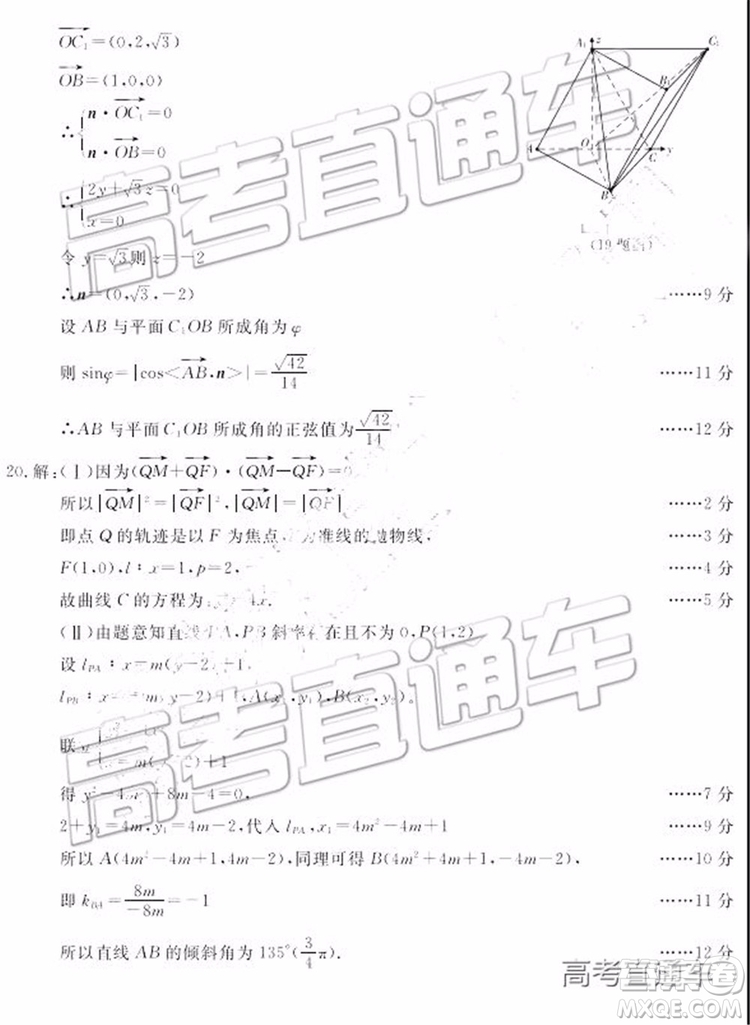 OC₁=(0,2,√3)
OB=(1,0,0)
∴{n·OC₁=0
n·OB=0
∴{2y+√3z=0
x=0
令 y=√3则 z=-2
∴n=(0,√3,-2) ……9 分
设 AB 与平面 C₁OB 所成角为φ
则 sinφ=|cos<AB,n>|=√42/14 ……11 分
∴AB 与平面 C₁OB 所成角的正弦值为√42/14 ……12 分
A₁ z C₁
B₁
A O C y
B
(19 题图)
20.解:(Ⅰ)因为(QM+QF)·(QM-QF)=0
所以|QM|²=|QF|²,|QM|=|QF| ……2 分
即点 Q 的轨迹是以 F 为焦点, 为准线的抛物线, ……3 分
F(1,0),l:x=1,p=2, ……4 分
故曲线 C 的方程为 4x. ……5 分
(Ⅱ)由题意知直线PA,PB斜率存在且不为0,P(1,2)
设 lPA:x=m(y-2)+1,
lPB:x=-m(y-2)+1,A(x₁,y₁),B(x₂,y₂)。
联立 (y-2)+1
得 y²-4my+8m-4=0, ……7 分
2+y₁=4m,y₁=4m-2,代入 lPA,x₁=4m²-4m+1 ……9 分
所以 A(4m²-4m+1,4m-2),同理可得 B(4m²+4m+1,-4m-2) ……10 分
即 kBA=8m/-8m=-1 ……11 分
所以直线 AB 的倾斜角为 135°(3/4π). ……12 分
高考直通车
高考直通车
高考直通车
MXQE.COM